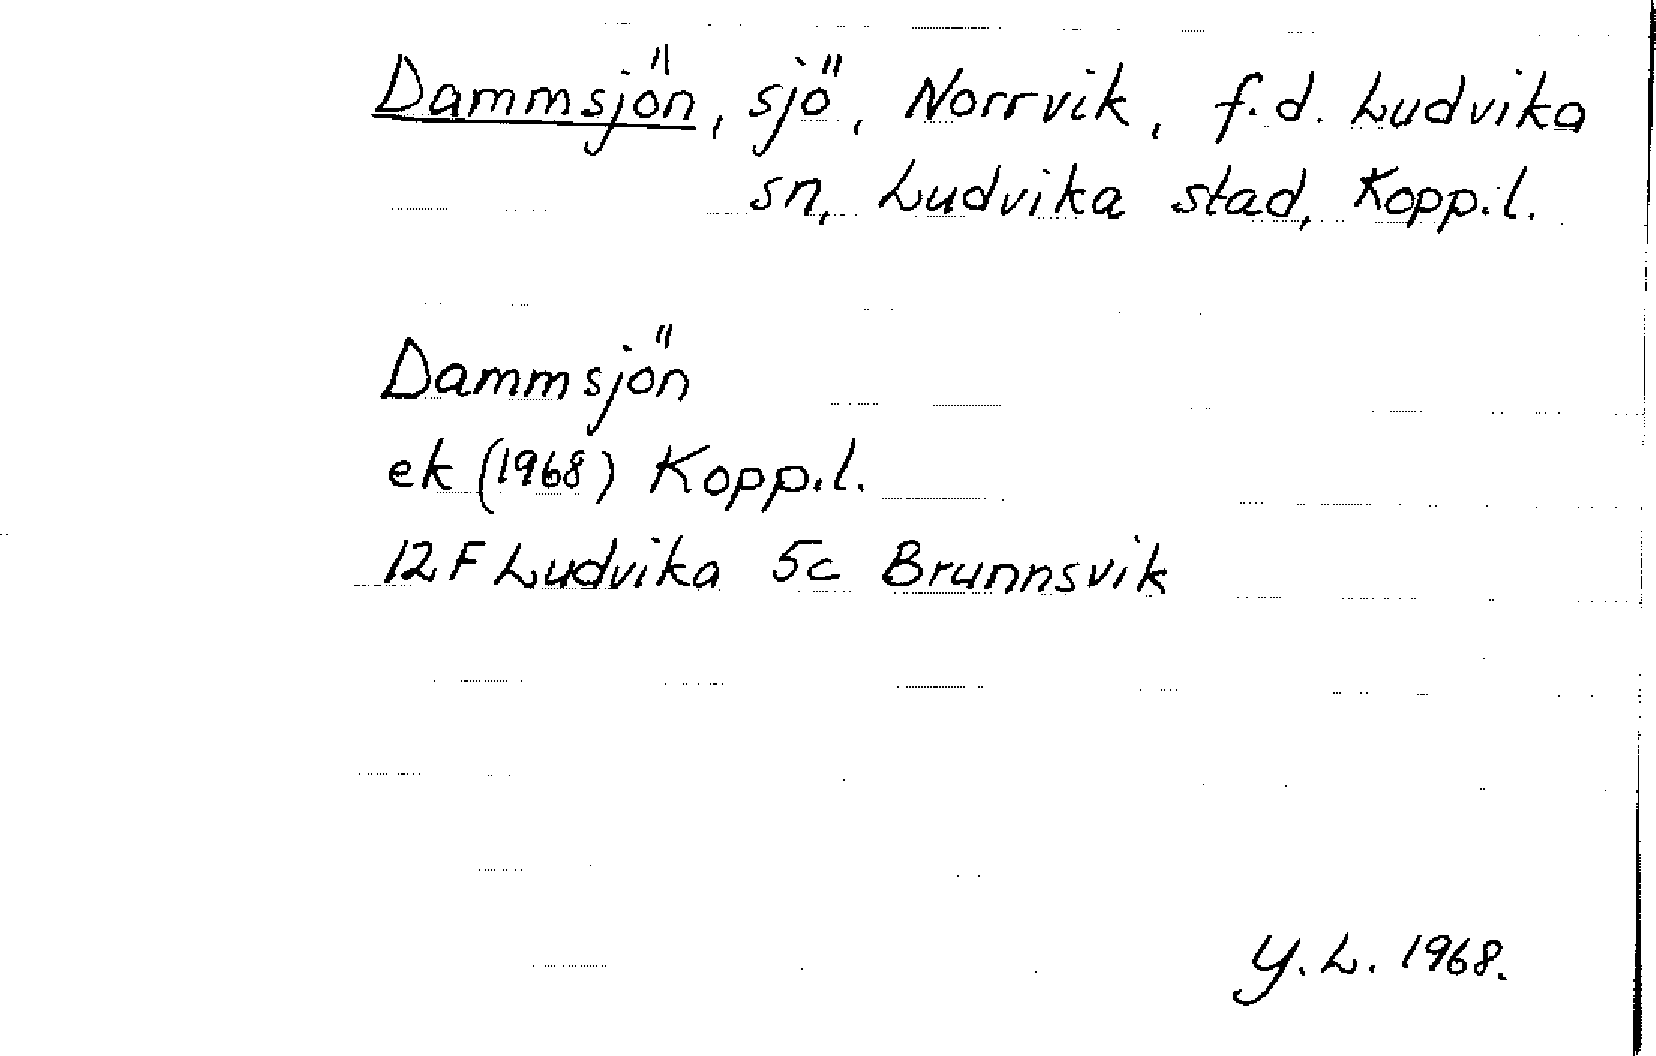 Dammsjön, sjö, Norrvik, f.d. Ludvika
sn, Ludvika stad, Kopp.l.
Dammsjön
ek (1968) Kopp.l.
12F Ludvika 5c Brunnsvik
Y.L. 1968.